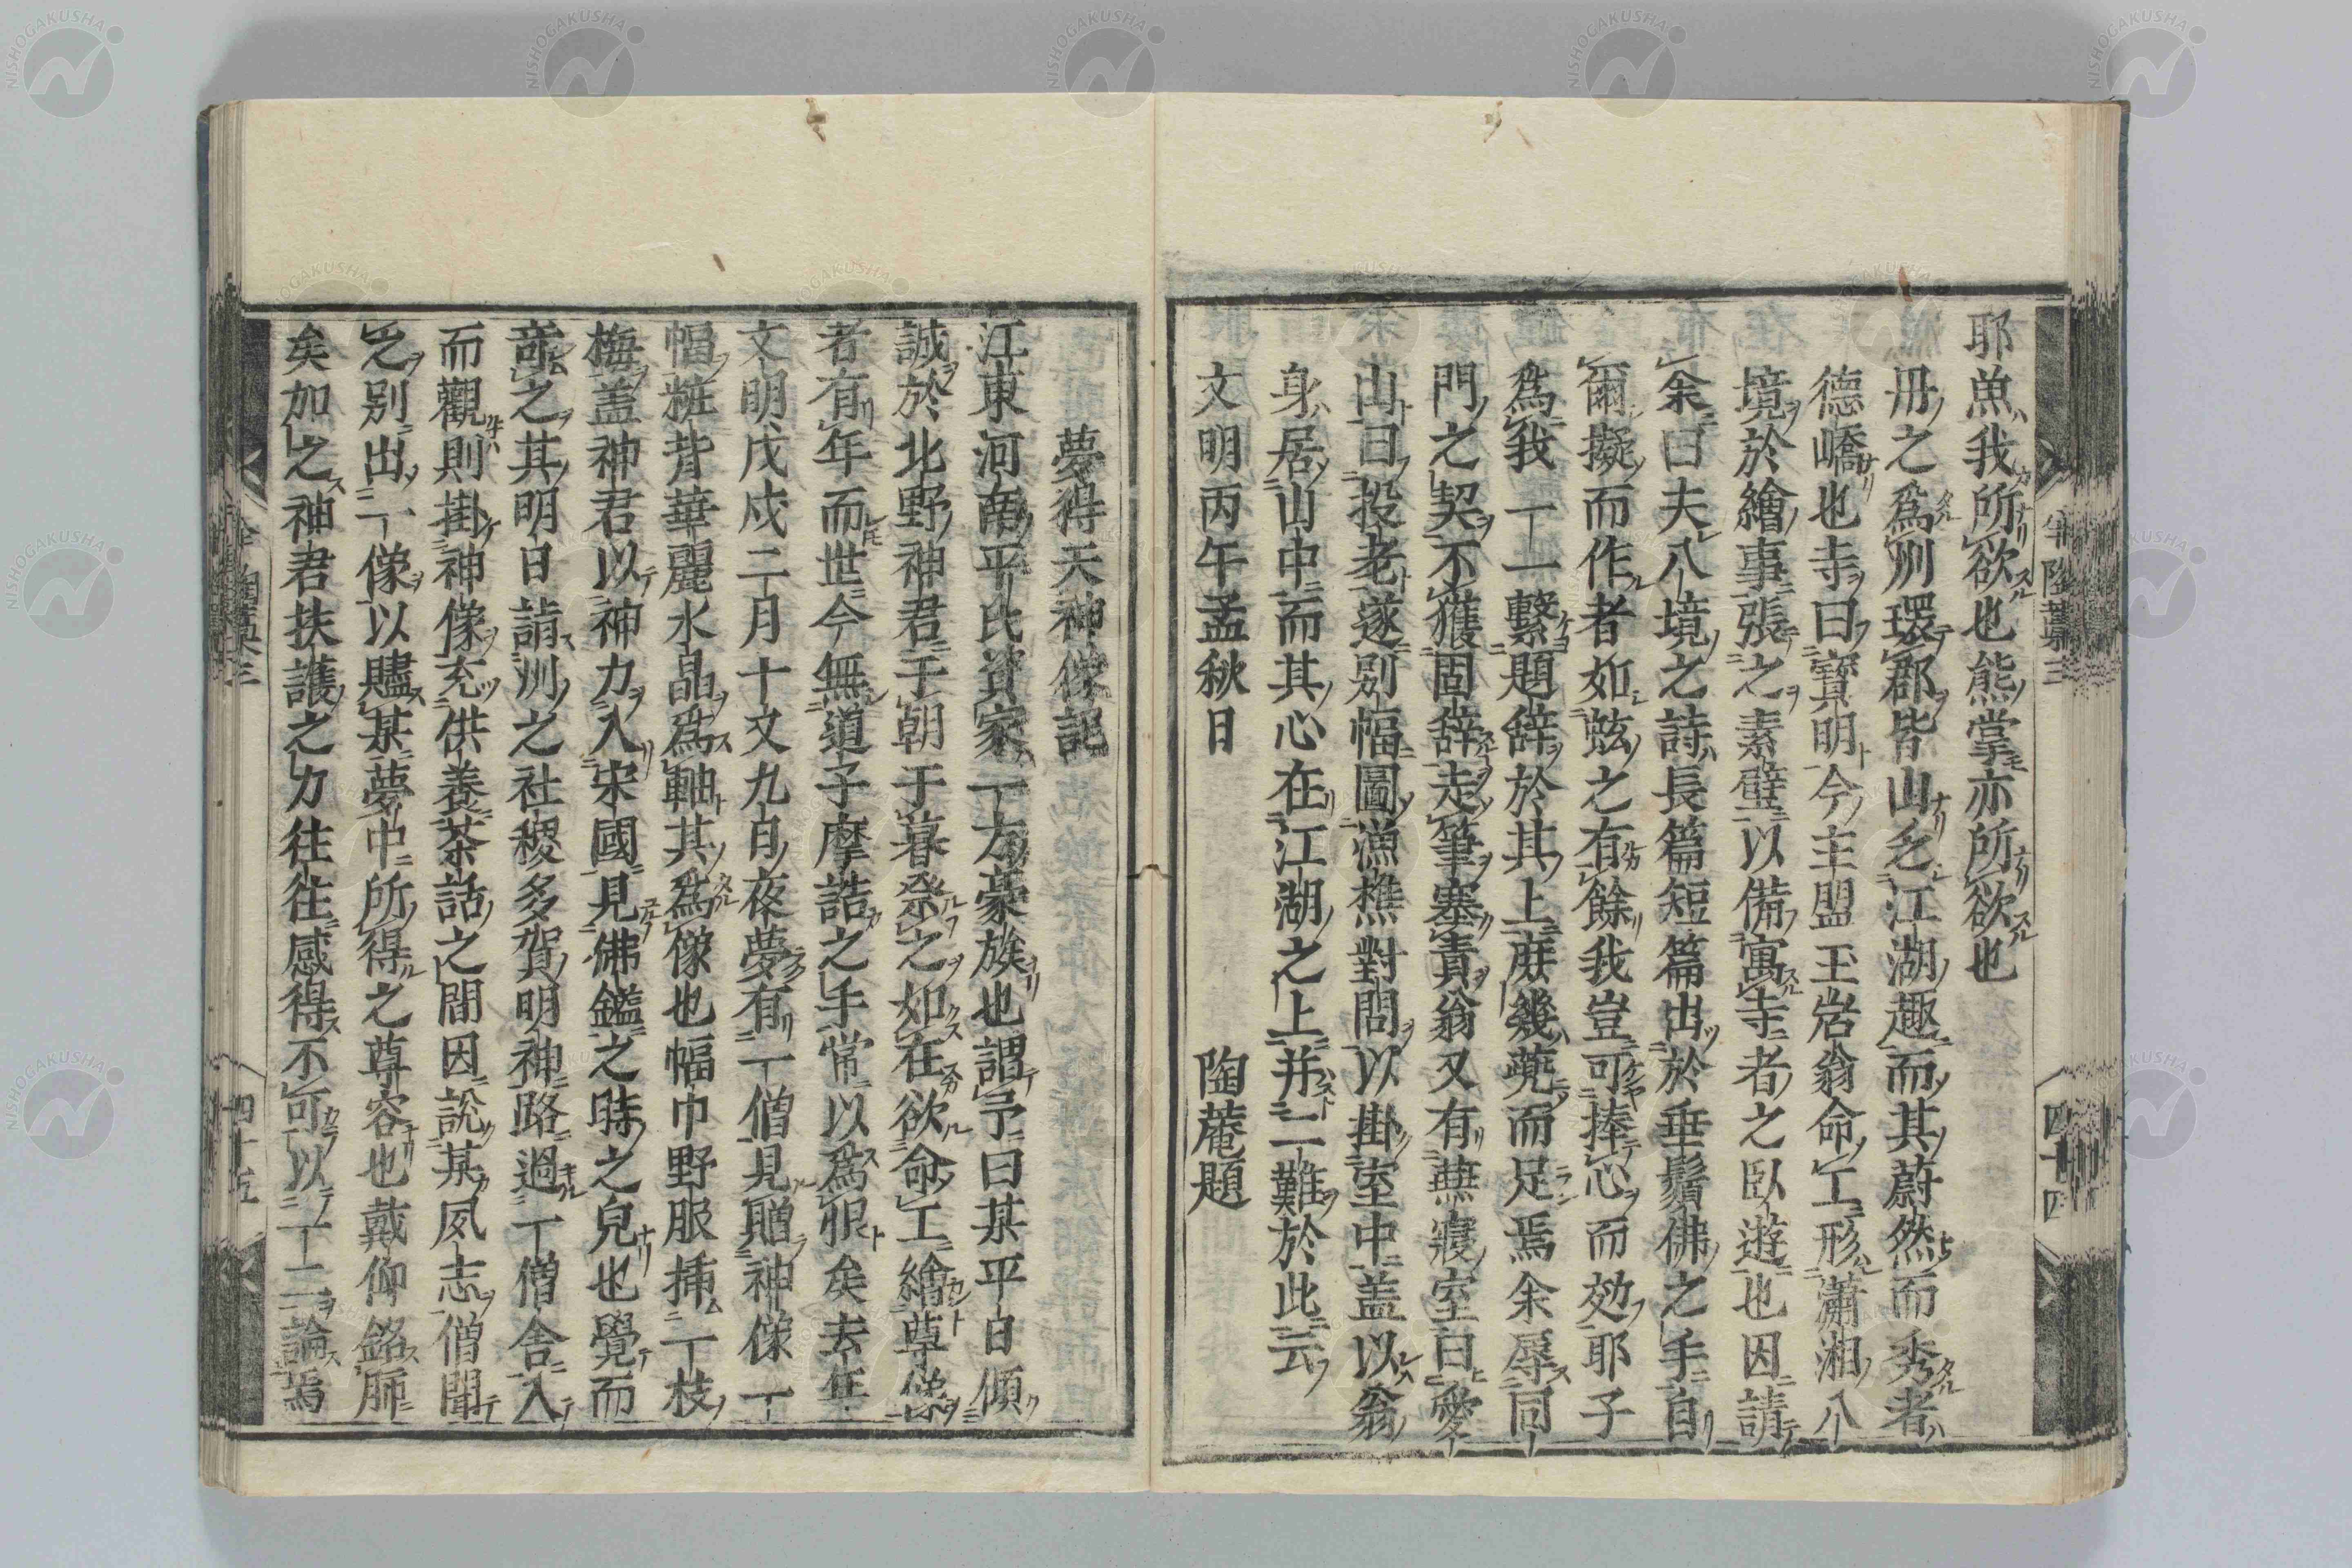 耶魚我所欲也熊掌亦所欲也
冊之爲州環郡皆山乏江湖趣而其蔚然而秀者
德嶠也寺曰寳明今主盟玉岩翁命工形瀟湘八
境於繪事張之素壁以備寓寺者之臥遊也因請
余曰夫八境之詩長篇短篇出於垂鬚佛之手自
爾擬而作者如蚿之有餘我豈可捧心而効耶子
爲我一一繫題辞於其上庶幾䕫而足焉余辱同
門之契不獲固辞走筆塞責翁又有燕寢室曰愛
山曰投老遂別幅圖漁樵對問以掛室中盖以翁
身居山中而其心在江湖之上并二難於此云
文明丙午孟秋日
陶菴題
半陶藁三
四十四
夢得天神像記
江東河南平氏資家一方豪族也謂予曰某平日傾
誠於北野神君于朝于暮祭之如在欲命工繪尊像
者有年而世今無道子摩詰之手常以爲恨矣去年
文明戊戌二月十又九日夜夢有一僧見贈神像一
幅粧背華麗水晶爲軸其爲像也幅巾野服挿一枝
梅盖神君以神力入宋國見佛鑑之時之皃也覺而
竒之其明日詣州之社稷多賀明神路過一僧舎入
而觀則掛神像充供養茶話之間因說某夙志僧聞
之別出一像以贐某夢中所得之尊容也戴仰銘肺
矣加之神君扶護之力往往感得不可以一二論焉
半陶藁三
四十五